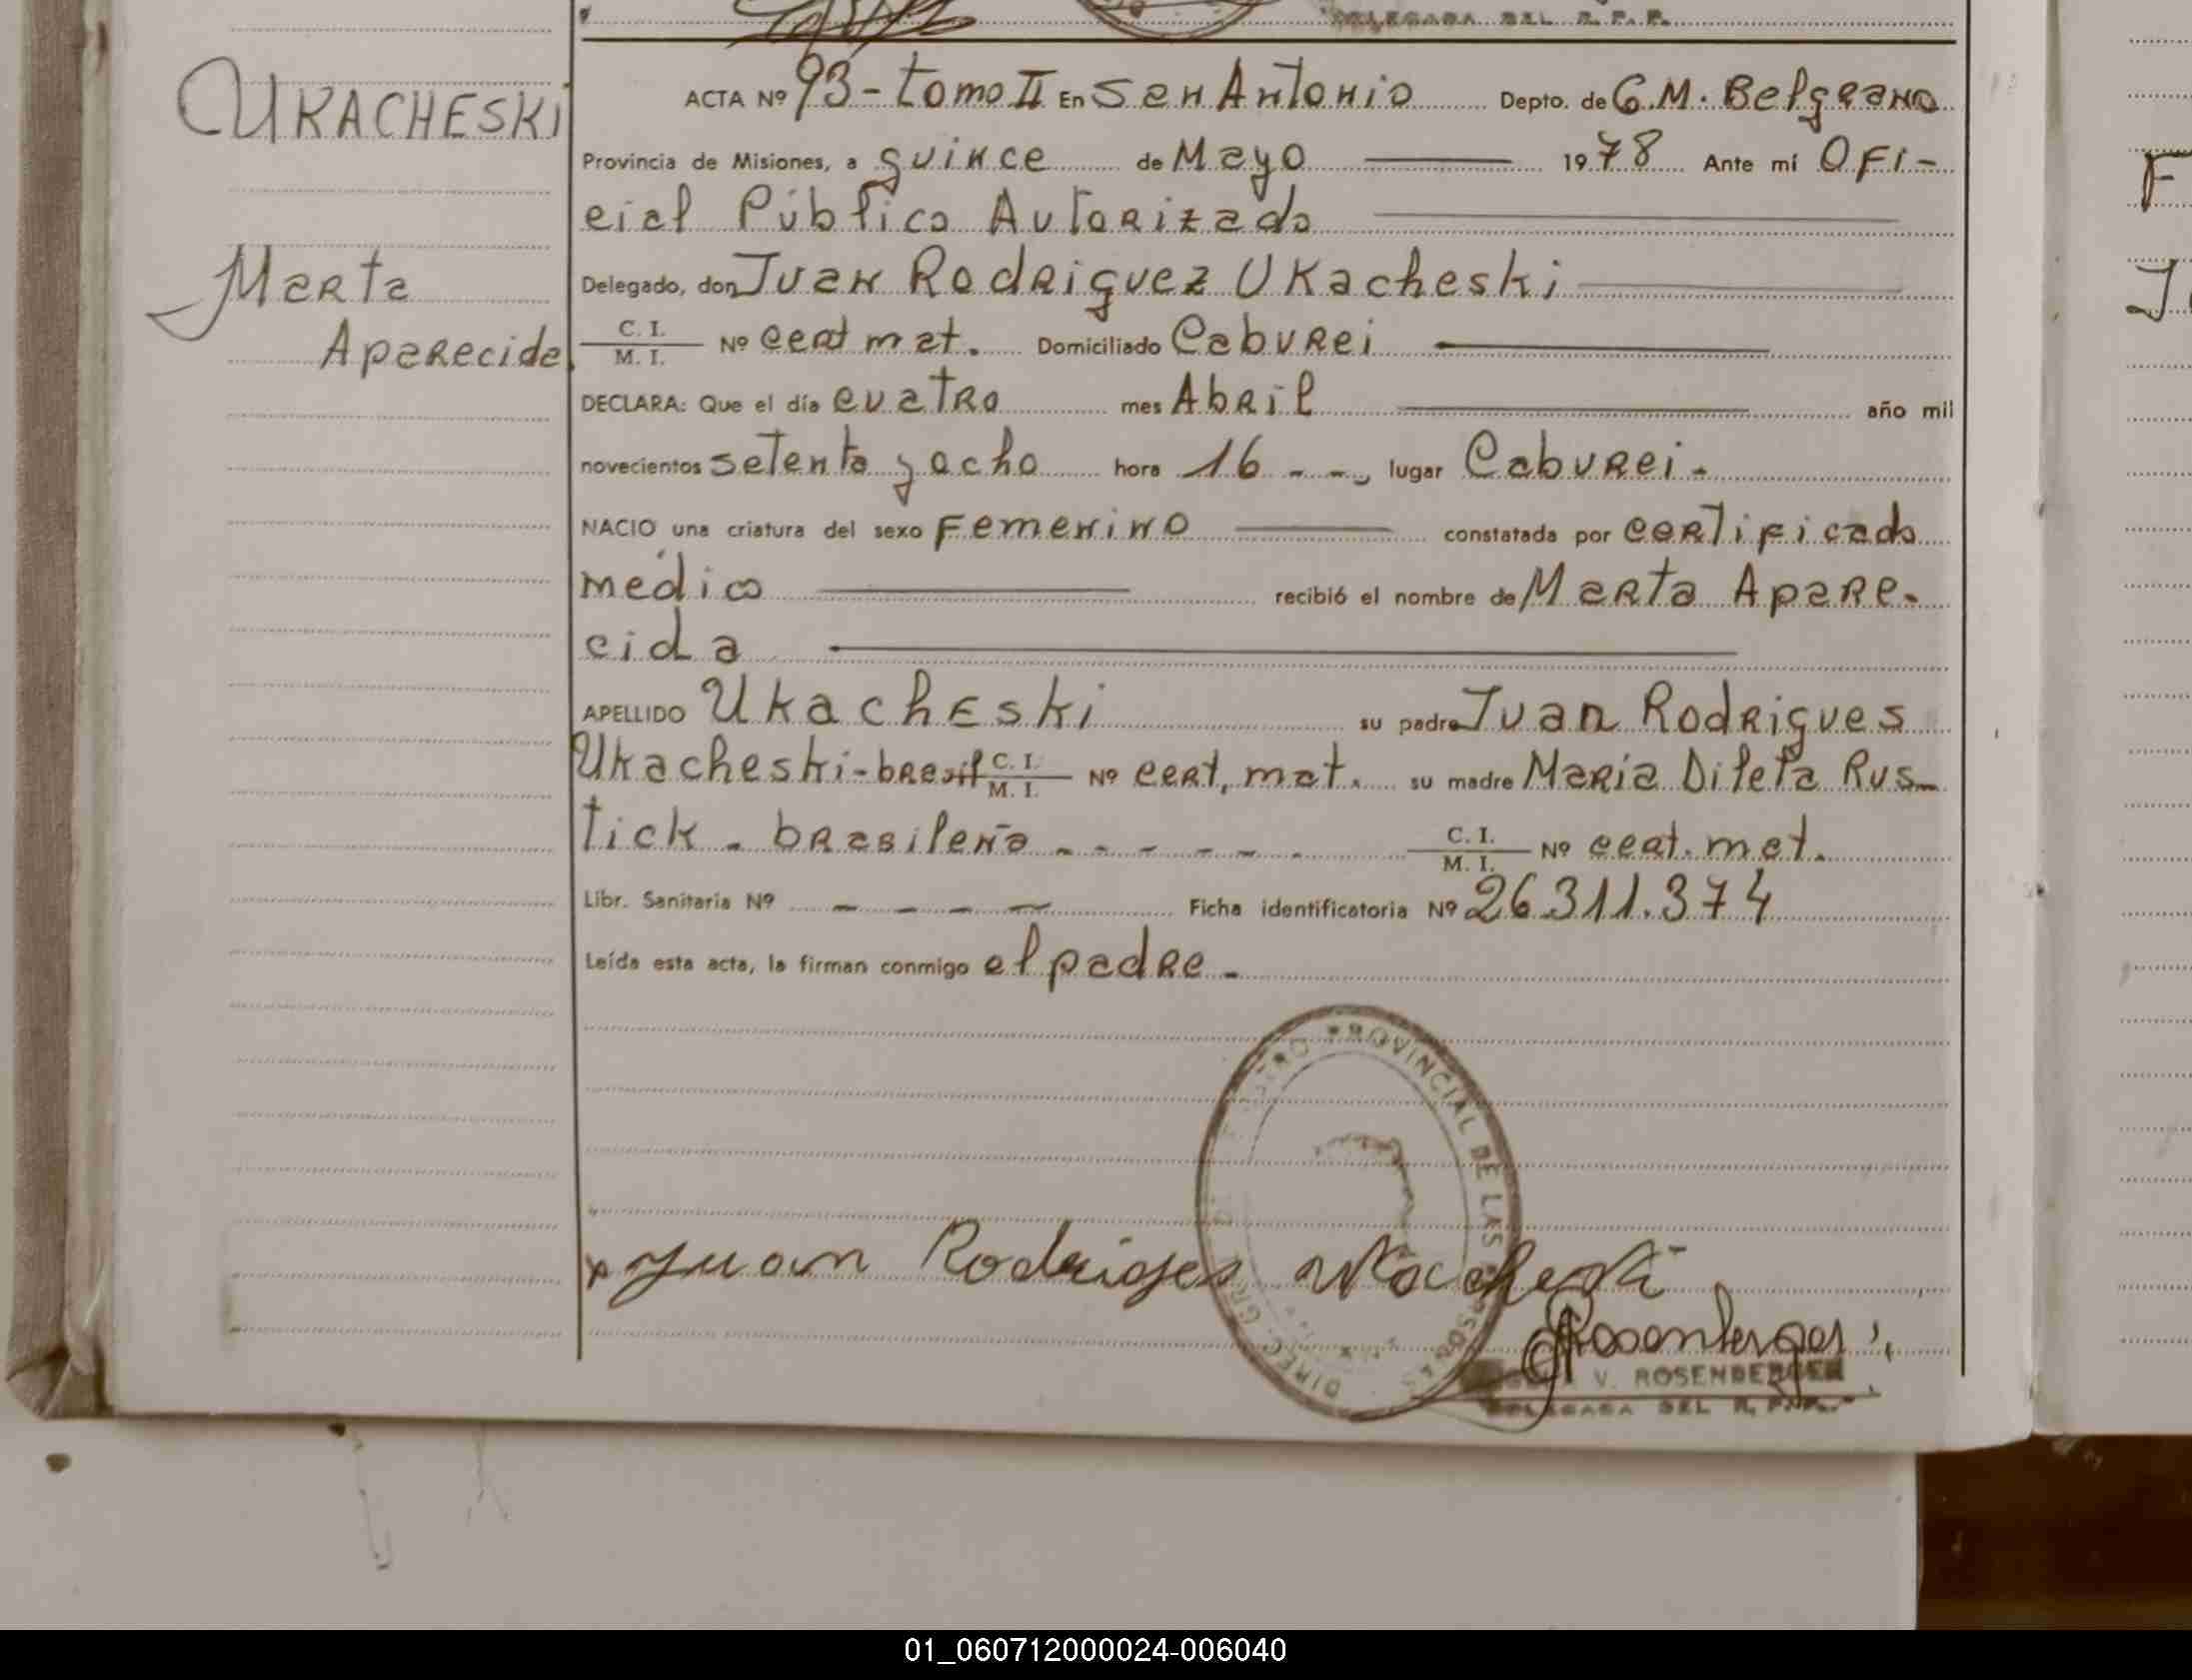 DELEGADA DEL R. P. P.
UKACHESKI
Marta
Aparecida
ACTA Nº 93 - Tomo II En San Antonio Depto. de G.M. Belgrano
Provincia de Misiones, a quince de Mayo 1978 Ante mí Ofi-
cial Público Autorizado
Delegado, don Juan Rodriguez Ukacheski
C. I.
M. I. Nº cert mat. Domiciliado Caburei
DECLARA: Que el día cuatro mes Abril año mil
novecientos setenta y ocho hora 16 - - , lugar Caburei -
NACIO una criatura del sexo Femenino constatada por certificado
médico recibió el nombre de Marta Apare-
cida
APELLIDO Ukacheski su padre Juan Rodrigues
Ukacheski - brasil C. I. M. I. Nº cert. mat. su madre Maria Dileta Rus-
tick - brasileña - - - - - - C. I. M. I. Nº cert. mat.
Libr. Sanitaria Nº - - - - Ficha identificatoria Nº 26.311.374
Leída esta acta, la firman conmigo el padre -
DIREC. GRAL. DEL REGISTRO PROVINCIAL DE LAS PERSONAS
x Juan Rodriges Ukacheski
Rosenberger
V. ROSENBERGER
DELEGADA DEL R. P. P.
01_060712000024-006040